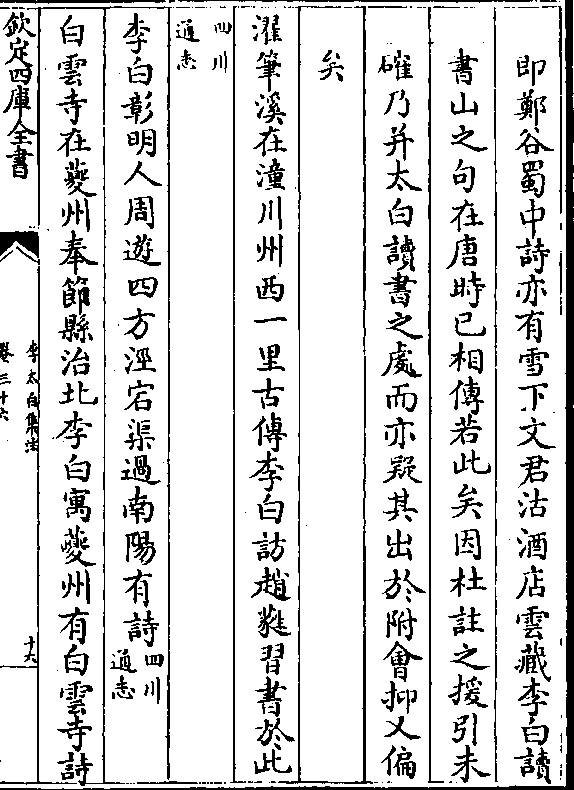 即鄭谷蜀中詩亦有雪下文君沽酒店雲藏李白讀
書山之句在唐時已相傳若此矣因杜註之援引未
確乃并太白讀書之處而亦疑其出於附會抑又偏
矣
濯筆溪在潼川州西一里古傳李白訪趙蕤習書於此
四川
通志
李白彰明人周遊四方涇宕渠過南陽有詩四川
通志
白雲寺在夔州奉節縣治北李白寓夔州有白雲寺詩
欽定四庫全書
李太白集注
卷三十六
十六